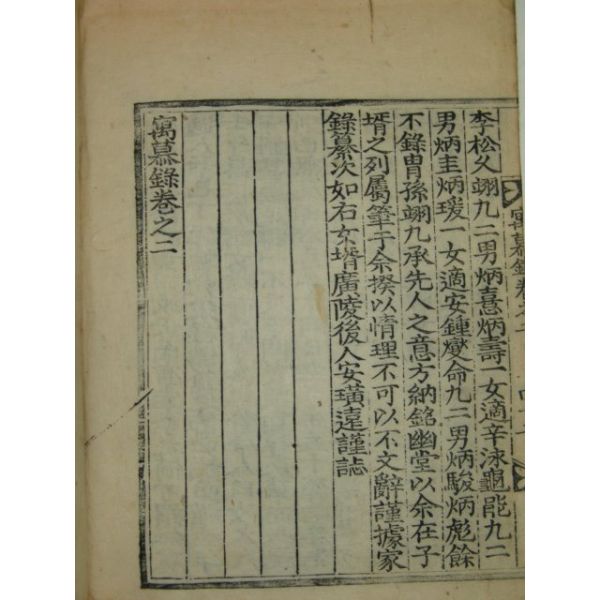 李松久翊九二男炳憙炳壽一女適辛泳龜能九二
男炳圭炳瑗一女適安鍾燮命九二男炳駿炳彪餘
不錄胄孫翊九承先人之意方納銘幽堂以余在子
壻之列屬筆于余揆以情理不可以不文辭謹據家
錄纂次如右女壻廣陵後人安璜遠謹誌
寓慕錄卷之二
寓慕錄卷之二